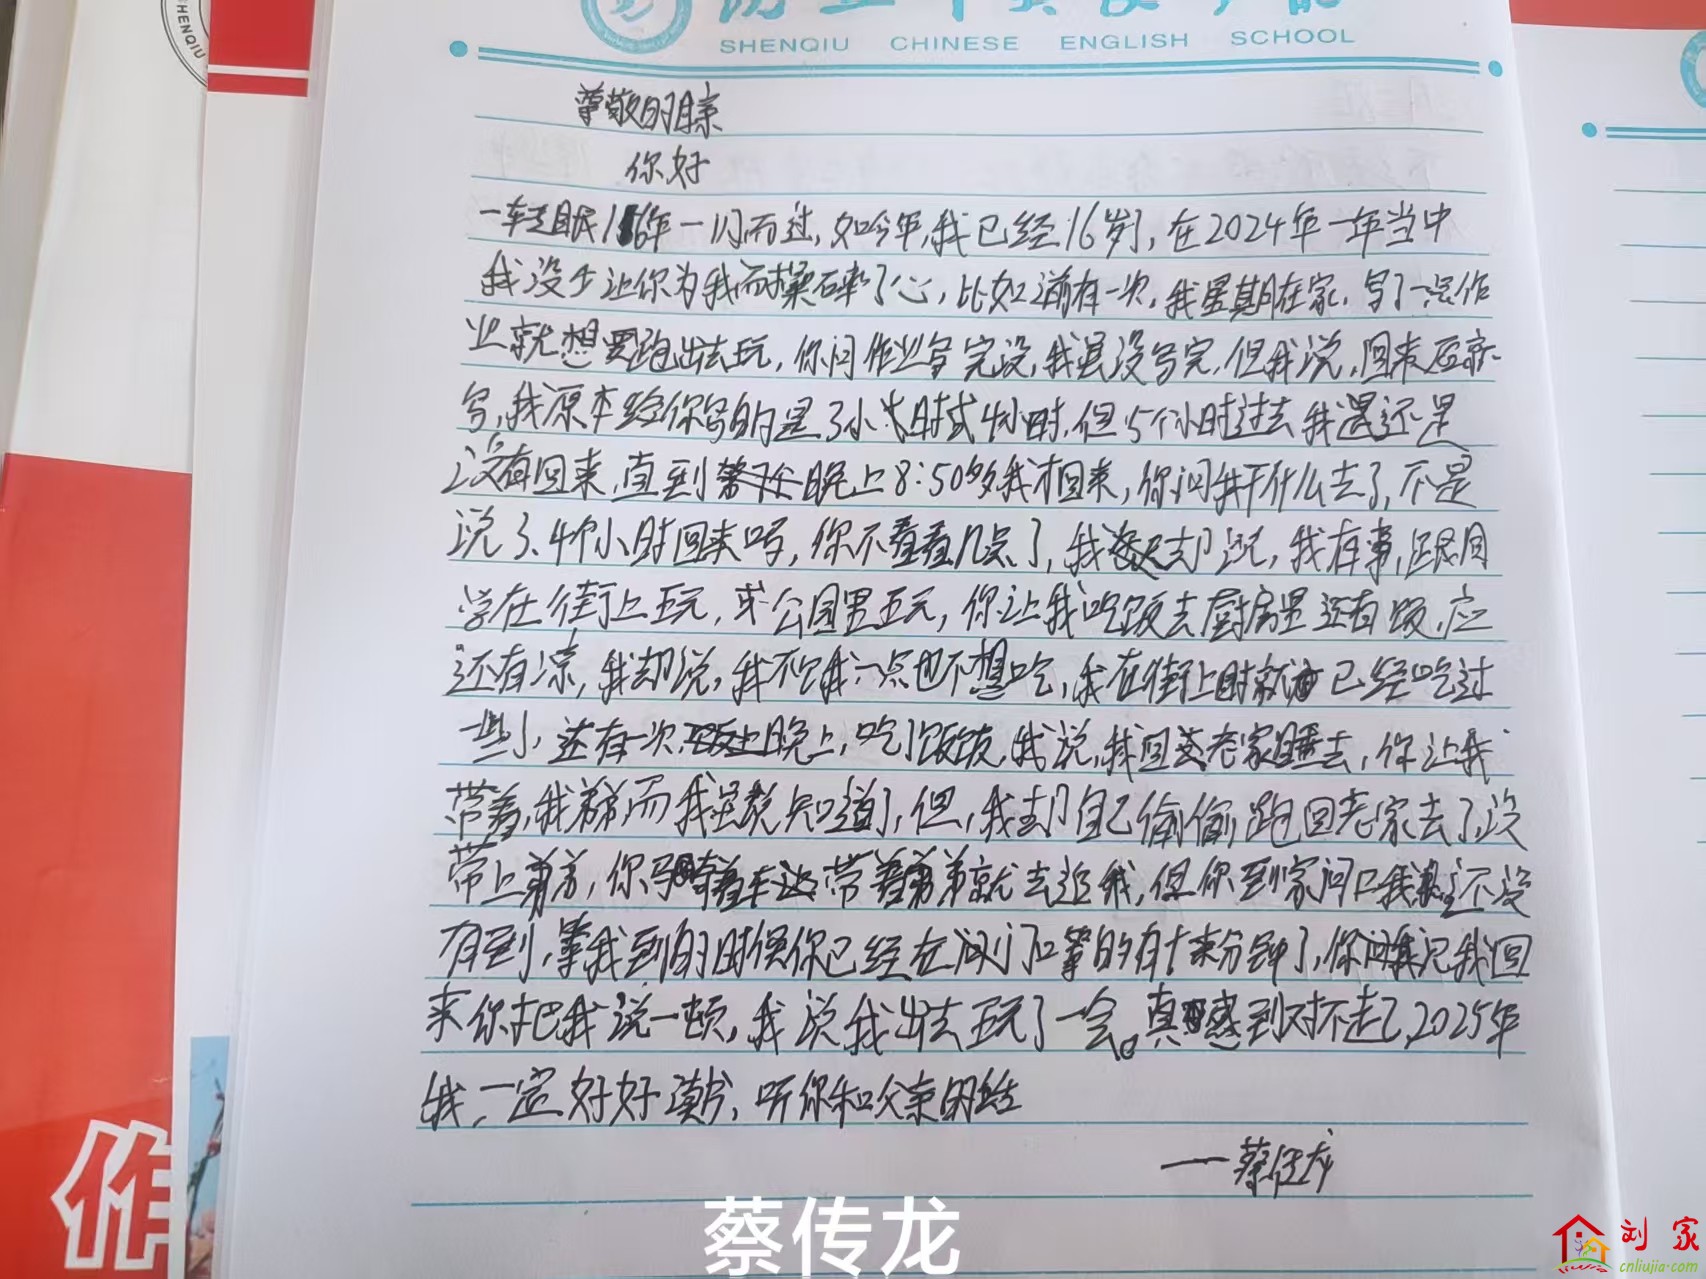 SHENQIU CHINESE ENGLISH SCHOOL
SHENQIU
尊敬的母亲
你好
一转眼16年一闪而过，如今年，我已经16岁，在2024年一年当中
我没少让你为我而操碎了心，比如之前有一次，我星期在家，写了一点作
业就想要跑出去玩，你问作业写完没，我虽没写完，但我说，回来在
写，我原本给你写的是3小时或4小时，但5个小时过去我还是
没有回来，直到晚上8:50多我才回来，你问我干什么去了，不是
说3、4个小时回来吗，你不看看几点了，我却说，我有事，跟同
学在街上玩，或公园里玩，你让我吃饭去厨房里还有饭，应
还有凉，我却说，我不饿我一点也不想吃，我在街上时就已经吃过
一些，还有一次晚上，吃了饭，我说，我回老家睡去，你让我
带着，我弟而我虽说知道了，但，我却自己偷偷跑回老家去了，没
带上弟弟，你骑着车带着弟弟就去追我，但你到家门口我还没
有到，等我到的时候你已经在门口等的有十来分钟了，你问我见我回
来你把我说一顿，我说我出去玩了一会。真感到对不起，2025年
我，一定好好读书，听你和父亲的话
——蔡传龙
作
蔡传龙
刘家
cnliujia.com